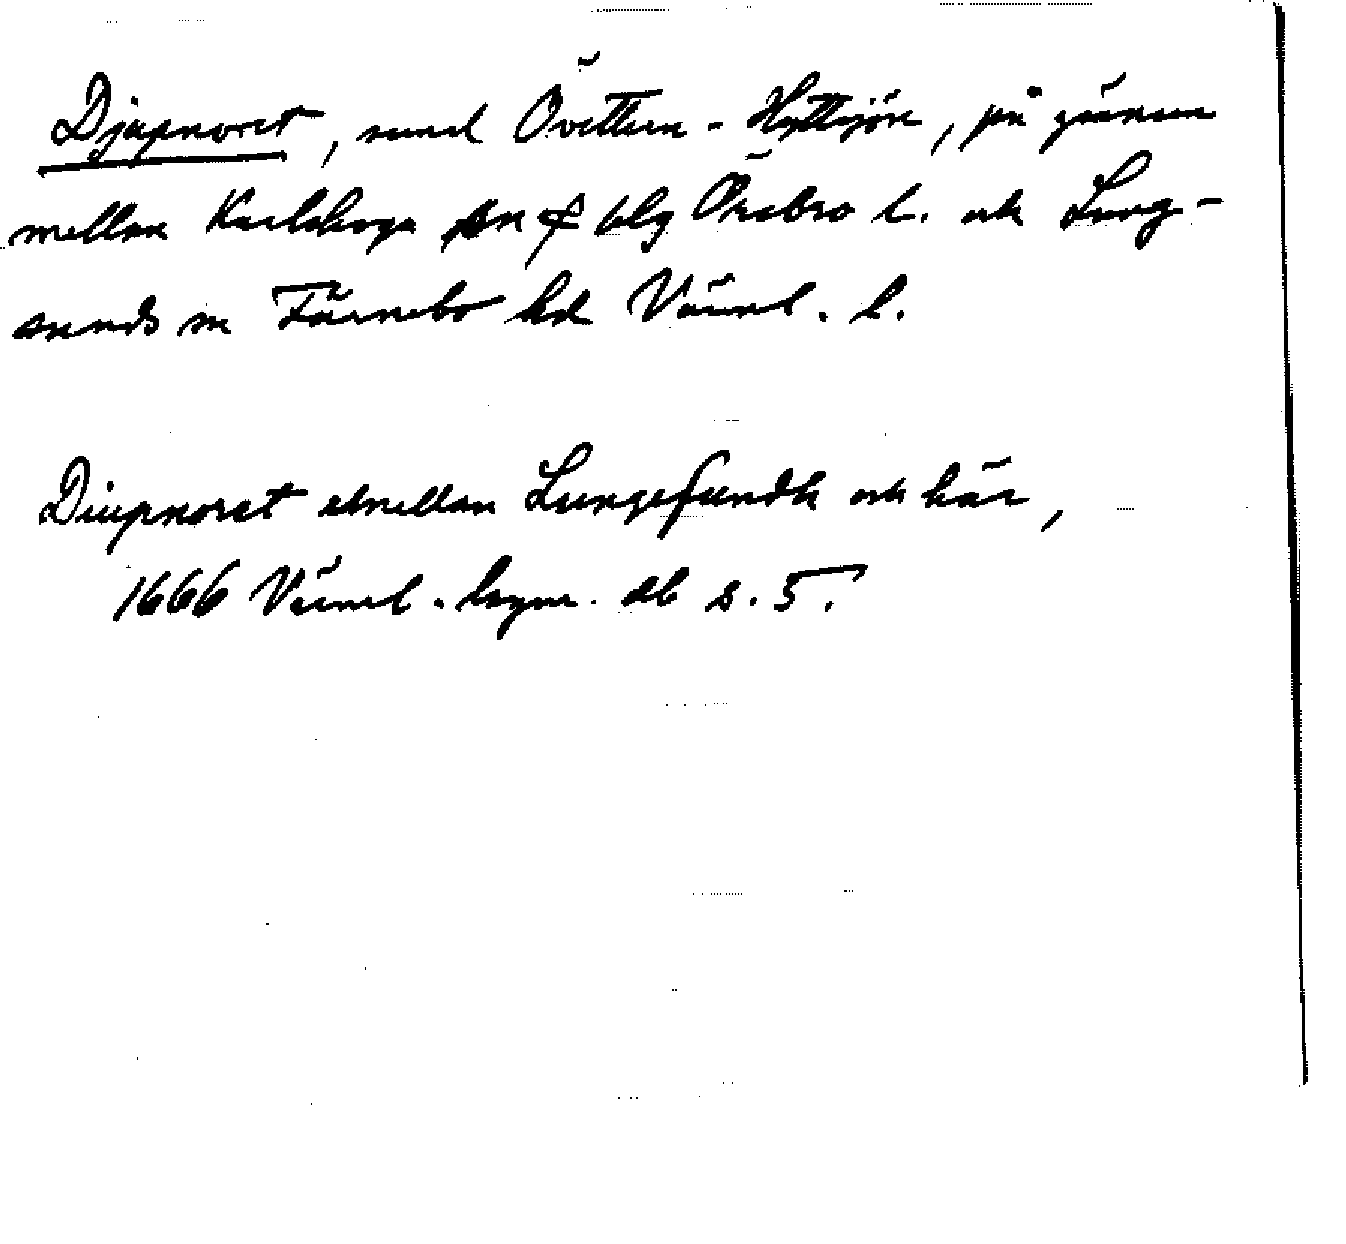 Djupnoret, sund Övettern - Hyttsjön, på gränsen
mellan Karlskoga sn o blg Örebro l. och Lung-
sunds sn Färnebo hd Värml. l.
Diupnoret emellan Lungesundh och här,
1666 Värml. bergsr. db s. 5.